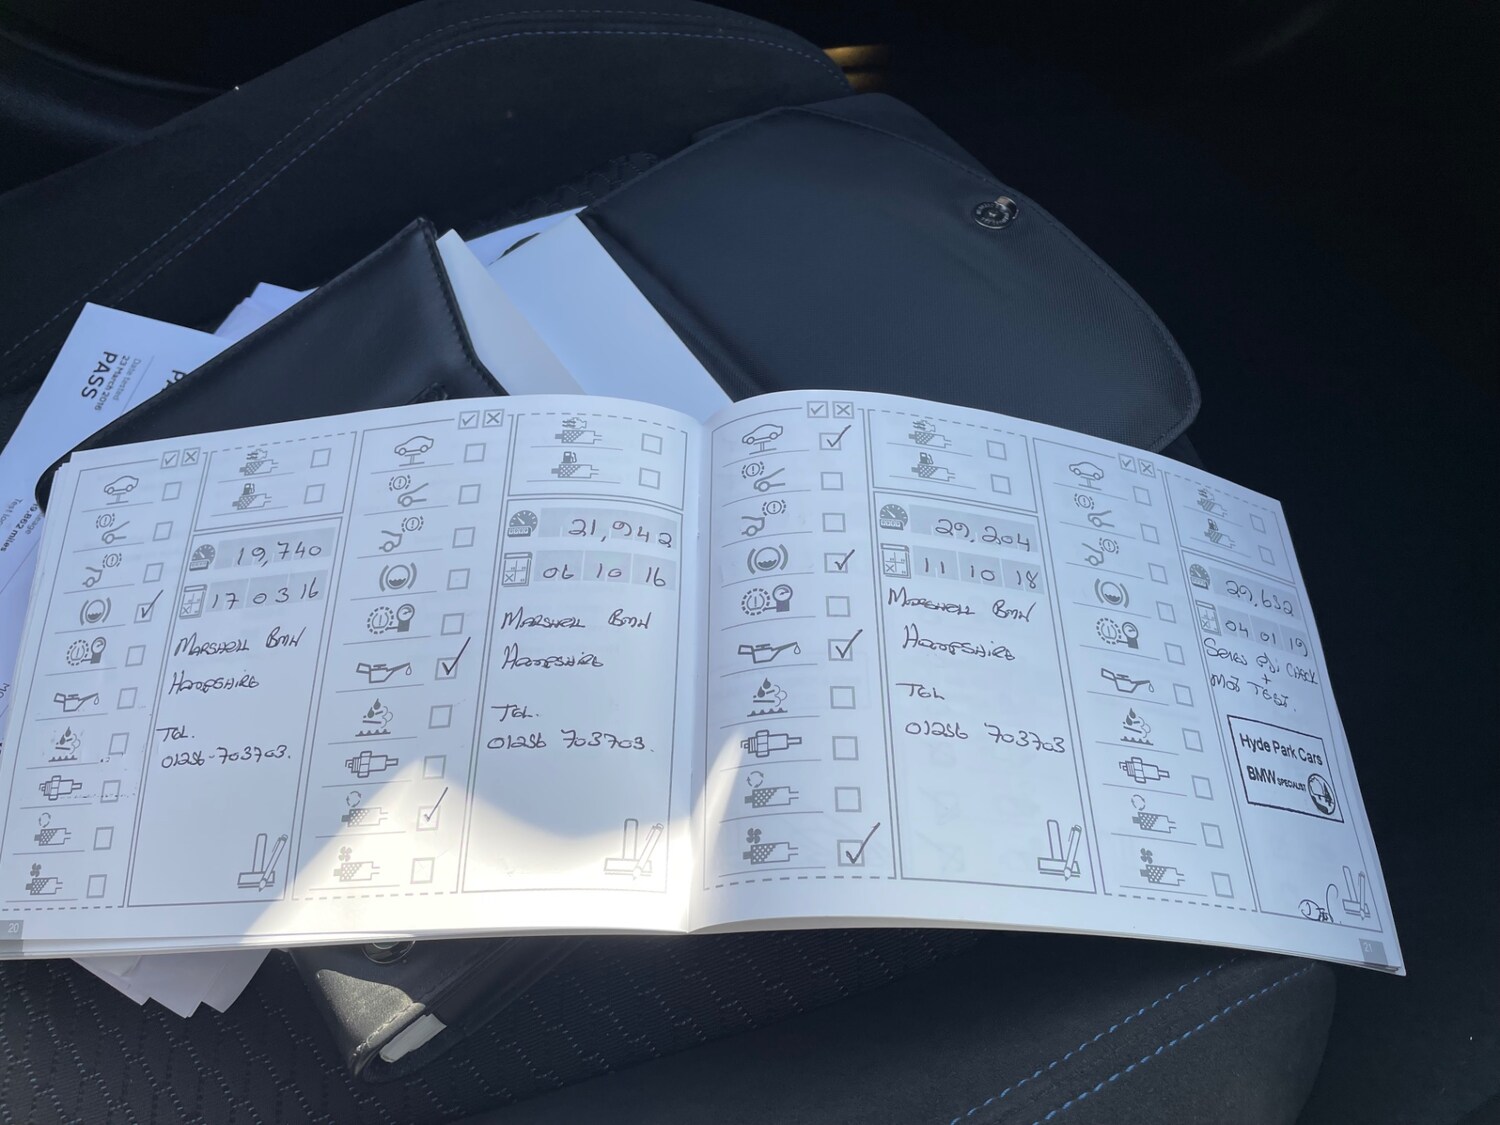 Date tested
23 March 2016
PASS
9,862 miles
19,740
17 03 16
MARSHALL BMW
HAMPSHIRE
TEL.
01256-703703.
21,942
06 10 16
MARSHALL BMW
HAMPSHIRE
TEL.
01256 703703.
29,204
11 10 18
MARSHALL BMW
HAMPSHIRE
TEL
01256 703703
29,632
04 01 19
CHECK
+
MOT TEST.
Hyde Park Cars
BMW SPECIALIST
20
21